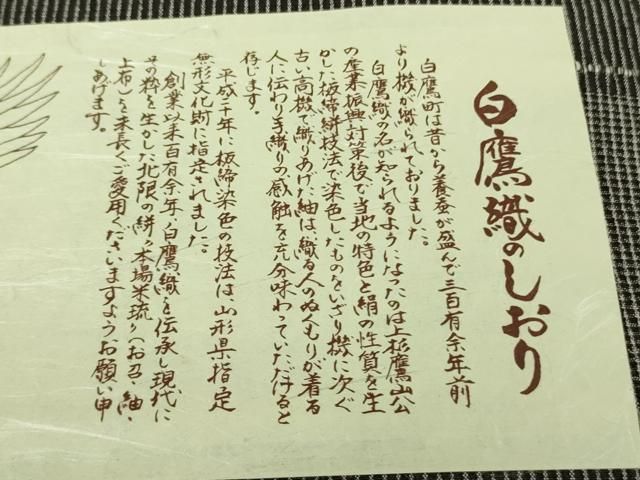 白鷹織のしおり
白鷹町は昔から養蚕が盛んで三百有余年前
より機が織られておりました。
白鷹織の名が知られるようになったのは上杉鷹山公
の産業振興計策後で当地の特色と絹の性質を生
かした板締絣技法で染色したものをいざり機に次ぐ
古い高機で織りあげた紬は、織る人のぬくもりが着る
人に伝わり手織りの感触を充分味わっていただけると
存じます。
平成二年に板締染色の技法は、山形県指定
無形文化財に指定されました。
創業以来百有余年、白鷹織を伝承し現代に
その粋を生かした北限の絣〃本場米琉〃(お召・紬・
上布)を末長くご愛用くださいますようお願い申
しあげます。